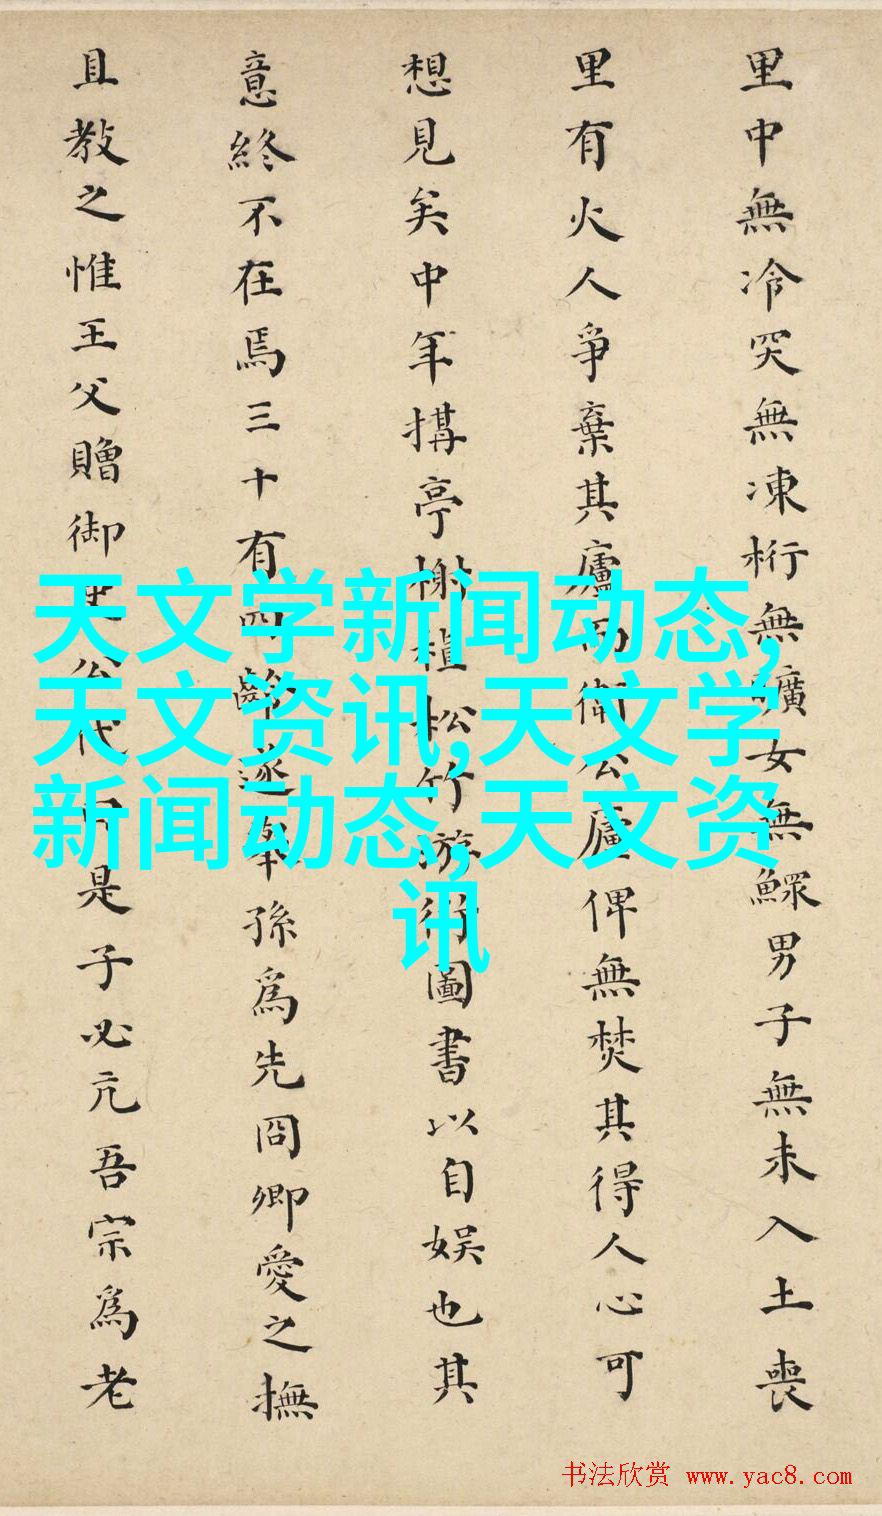 里中無冷突無凍桁無曠女無鰥男子無未入土喪
里有火人爭棄其廬而衛公廬俾無焚其得人心可
想見矣中年搆亭榭植松竹游衍圖書以自娛也其
意終不在焉三十有四齡遂舉孫為先冏卿愛之撫
且教之惟王父贈御史公代曰是子必亢吾宗為老
天文学新闻动态,
天文资讯,天文学
新闻动态,天文资
讯
书法欣赏 www.yac8.com